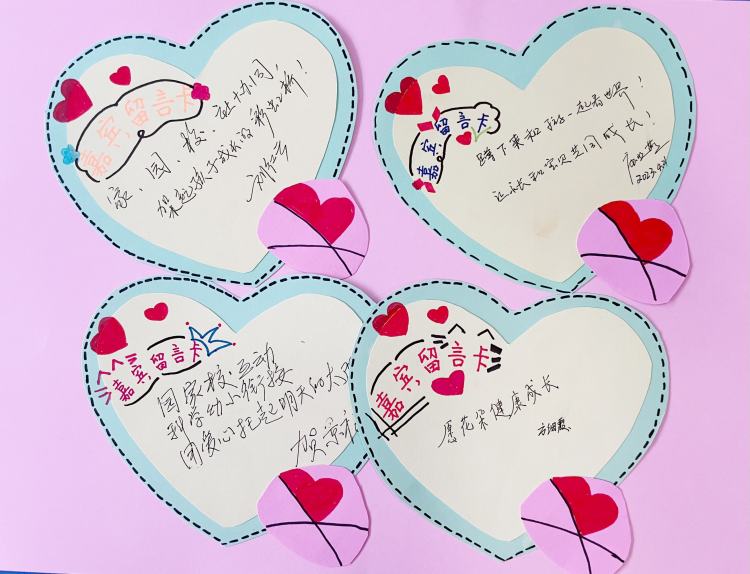 嘉宾留言卡
家、园、校、社协同,
撑起孩子成长的
嘉宾留言卡
蹲下来和孩子一起看世界!
让家长和宝贝共同成长!
2023.
嘉宾留言卡
园家校互动
科学幼小衔接
用爱心托起明天的太
嘉宾留言卡
愿花朵健康成长